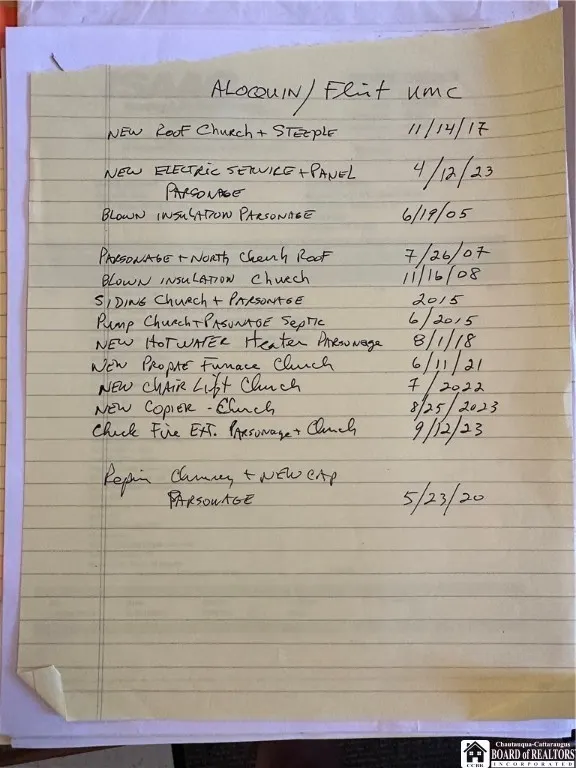 ALOQUIN / Flint UMC
NEW Roof Church + STEEPLE 11/14/17
NEW ELECTRIC SERVICE + PANEL 4/12/23
PARSONAGE
BLOWN INSULATION PARSONAGE 6/19/05
PARSONAGE + NORTH Church Roof 7/26/07
BLOWN INSULATION Church 11/16/08
SIDING Church + PARSONAGE 2015
Pump Church + PASONAGE Septic 6/2015
NEW HOTWATER Heater PARSONAGE 8/1/18
NEW PROPAE Furnace Church 6/11/21
NEW CHAIR Lift Church 7/2022
NEW COPIER - Church 8/25/2023
Check Fire EXT. PARSONAGE + Church 9/12/23
Repair Chimney + NEW CAP
PARSONAGE 5/23/20
Chautauqua-Cattaraugus
BOARD of REALTORS
INCORPORATED
CCBR